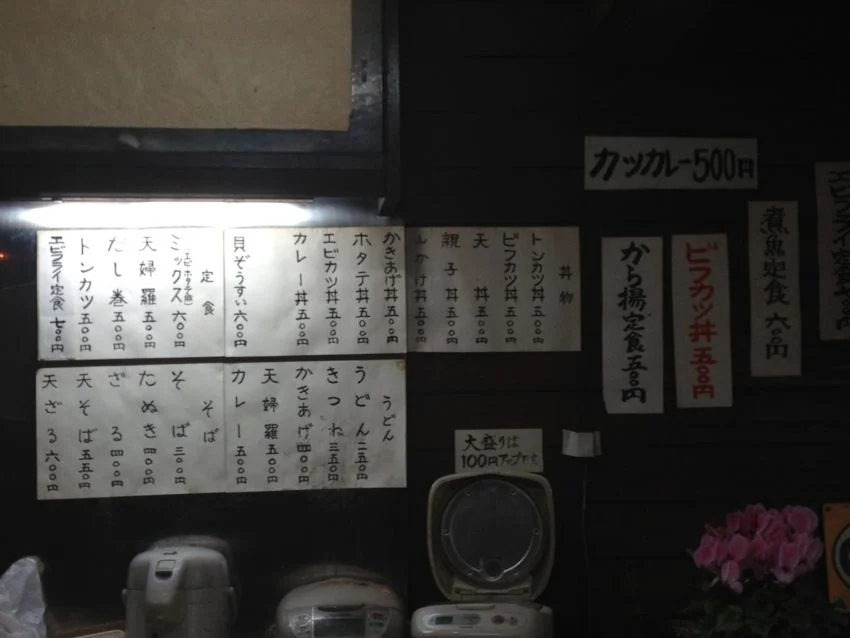 カツカレー500円
丼物
トンカツ丼五〇〇円
ビフカツ丼五〇〇円
天丼五〇〇円
親子丼五〇〇円
山かけ丼五〇〇円
かきあげ丼五〇〇円
ホタテ丼五〇〇円
エビカツ丼五〇〇円
カレー丼五〇〇円
貝ぞうすい六〇〇円
定食
ミックス(エビ・ホタテ・魚)六〇〇円
天婦羅五〇〇円
だし巻五〇〇円
トンカツ五〇〇円
エビフライ定食七〇〇円
うどん
うどん二五〇円
きつね三五〇円
かきあげ四〇〇円
天婦羅五〇〇円
カレー五〇〇円
そば
そば三〇〇円
たぬき四〇〇円
ざる四〇〇円
天そば五五〇円
天ざる六〇〇円
煮魚定食六〇円
ビフカツ丼五〇円
から揚定食五〇円
大盛りは
100円アップです